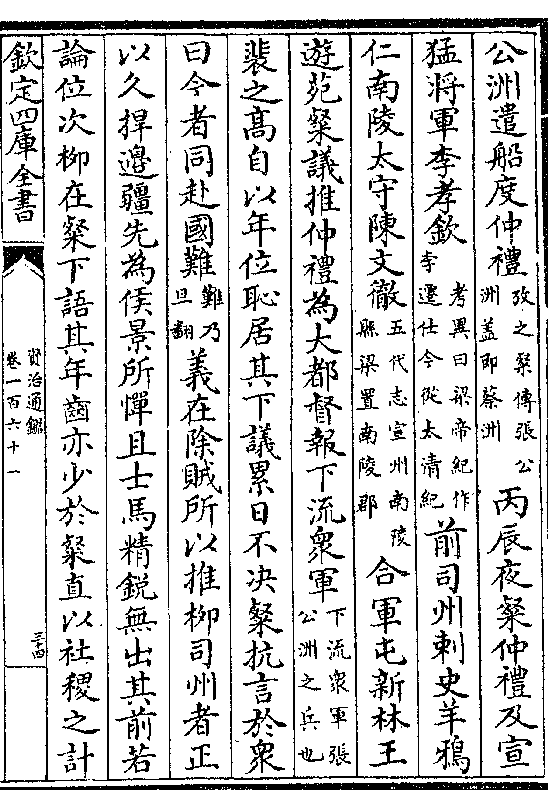 公洲遣船度仲禮攷之粲傳張公洲蓋即蔡洲丙辰夜粲仲禮及宣
猛將軍李孝欽考異曰梁帝紀作李遷仕今從太清紀前司州刺史羊鴉
仁南陵太守陳文徹五代志宣州南陵縣梁置南陵郡合軍屯新林王
遊苑粲議推仲禮為大都督報下流衆軍下流衆軍張公洲之兵也
裴之髙自以年位恥居其下議累日不决粲抗言於衆
曰今者同赴國難難乃旦翻義在除賊所以推柳司州者正
以久捍邊疆先為侯景所憚且士馬精鋭無出其前若
論位次柳在粲下語其年齒亦少於粲直以社稷之計
欽定四庫全書
資治通鑑
卷一百六十一
三十四